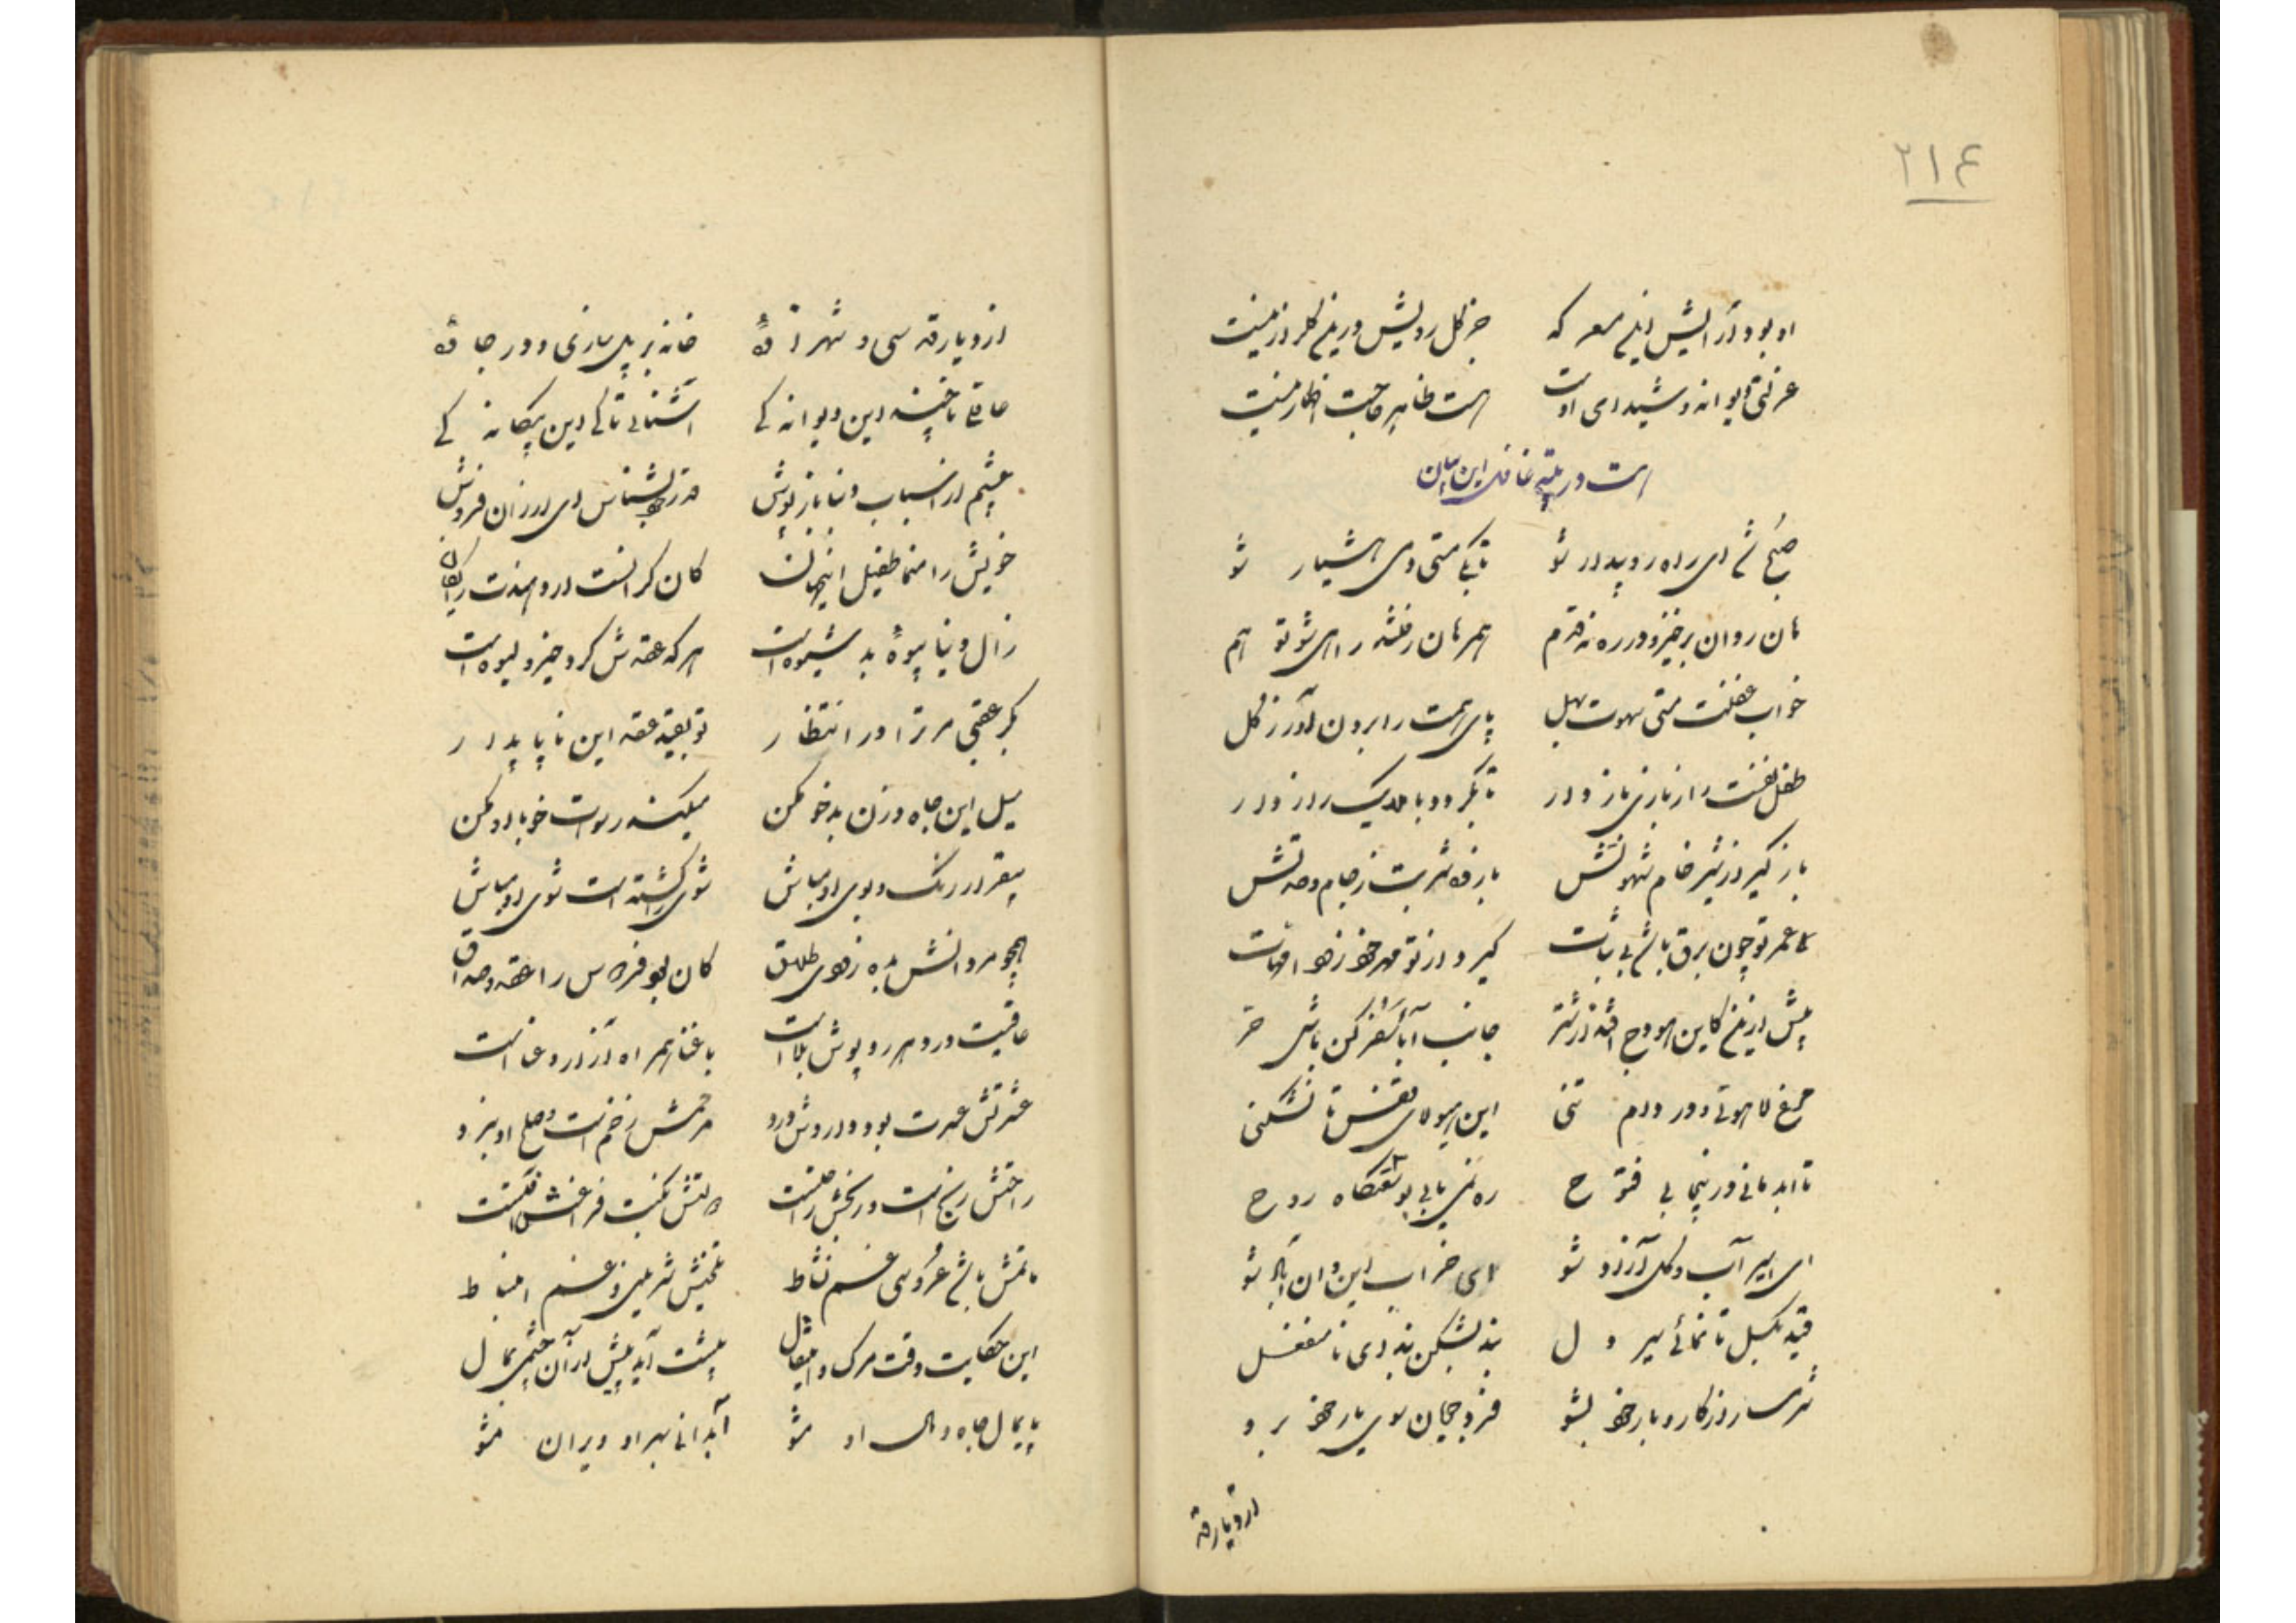 ۲۱۴
او بود آرایش این معرکه جز گل رویش درین گلزار نیست
عزلتی دیوانه و شیدای اوست هست ظاهر حاجت اظهار نیست
است در تنبیه غافل این بیان
صبح شد ای راه رو بیدار شو تا بکی مستی دمی هشیار شو
هان روان برخیز و در ره نه قدم همرهان رفتند راهی شو تو هم
خواب غفلت مستی شهوت بهل پای همت را برون آور ز گل
طفل نفست را ز بازی باز دار تا نگردد با بدیک راز دار
باز گیر از شیر خام شهوتش بازده شربت ز جام وحدتش
ای عمر تو چون برق باشد بی ثبات گیرد از تو مهر خود زود امهات
پیش ازین کاین هودج افتد ز شتر جانب آبا سفر کن باش حر
مرغ لاهوتی و در دام تنی این هیولای قفس تا نشکنی
تا ابد مانی درینجا بی فتوح ره نمی یابی بنزهتگاه روح
ای اسیر آب و گل آزاد شو ای خراب این و آن آباد شو
قید بگسل تا نمائی سیر دل بند بشکن بندوی نا منفعل
شرمسار از کار و بار خود بشو فرد و عجلان سوی یار خود برو
از دیارقه
از دیارقه سی و شهر آفتاده خانه بر پل سازی و در جاده
عاقلی تا چند این دیوانه کی آشنائی تا کی این بیگانه کی
چشم از اسباب دنیا باز پوش قدر خود بشناس ای ارزان فروش
خویش را منما طفیل اینجهان کان گرانست اردهندت رایگان
زال دنیا بیوهٔ بد شیوه است هر که عقدش کرد حیز و لیوه است
بکر عقبی مر ترا در انتظار تو بقید عقد این ناپایدار
میل این جاه و زن بدخو مکن میکند رسوات خو با او مکن
بیقرار رنگ و بوی او مباش شوی کش گشته است شوی او مباش
همچو مردانش بده زودی طلاق کان بود فردوس را عقد و صداق
عاقبت در دهر رو پوش بلاست با غنا همراه آز در و عناست
عشرتش عسرت بود دارویش درد مرهمش زخم است و صلح او نبرد
راحتش رنج است و رنجش راحتست دولتش نکبت فراغش نکبتست
ماتمش باشد عروسی غم نشاط تلخیش شیرینی و غم انبساط
این حکایت وقت مرگ و انتقال پیشت آید پیش از آن چشمی بمال
پایمال جاه و مال او مشو آبدانی بهر او ویران مشو